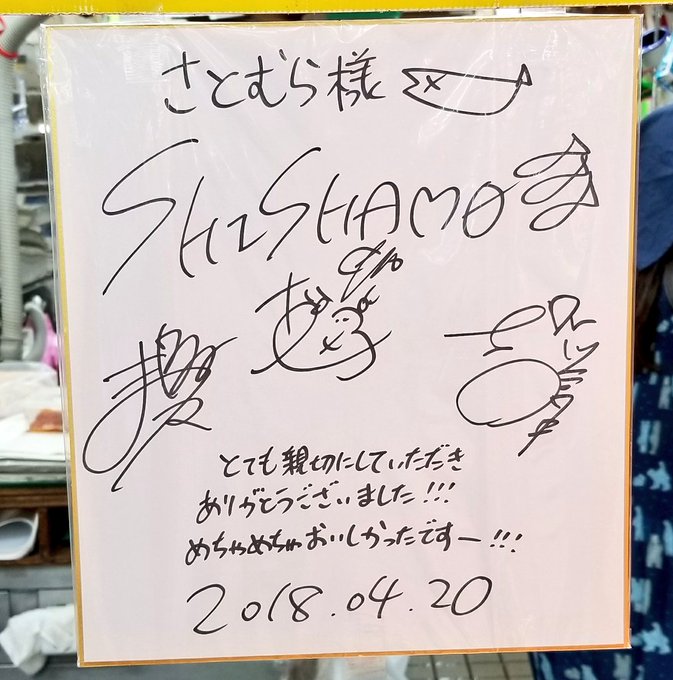 さとむら様
SHISHAMO
とても親切にしていただき
ありがとうございました!!!
めちゃめちゃおいしかったですー!!!
2018.04.20